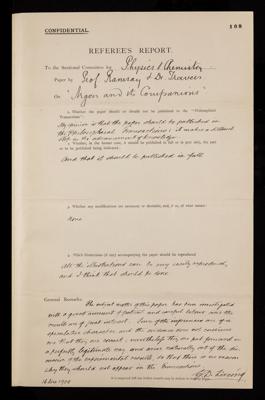 CONFIDENTIAL.
108
REFEREE'S REPORT.
To the Sectional Committee for Physics & Chemistry
Paper by Prof Ramsay & Dr. Travers
On "Argon and its Companions"
1. Whether the paper should or should not be published in the "Philosophical
Transactions":
My opinion is that the paper should be published in
the Philosophical Transactions: it makes a distinct
step in the advancement of knowledge.
2. Whether, in the former case, it should be published in full or in part only, the part
or to be published being indicated.
And that it should be published in full
3. Whether any modifications are necessary or desirable, and, if so, of what nature:
None
4. Which illustrations (if any) accompanying the paper should be reproduced
All the illustrations can be very easily reproduced,
and I think that should be done
General Remarks.
The subject matter of this paper has been investigated
with a great amount of patience and careful labour and the
results are of great interest. Some of the are of a
speculative character and the evidence does not convince
me that they are correct: nevertheless they are put forward in
a perfectly legitimate way and arise naturally out of the
of the experimental results, so that there is no reason
why they should not appear in the Transactions
G. D. Liveing
16 Dec 1900